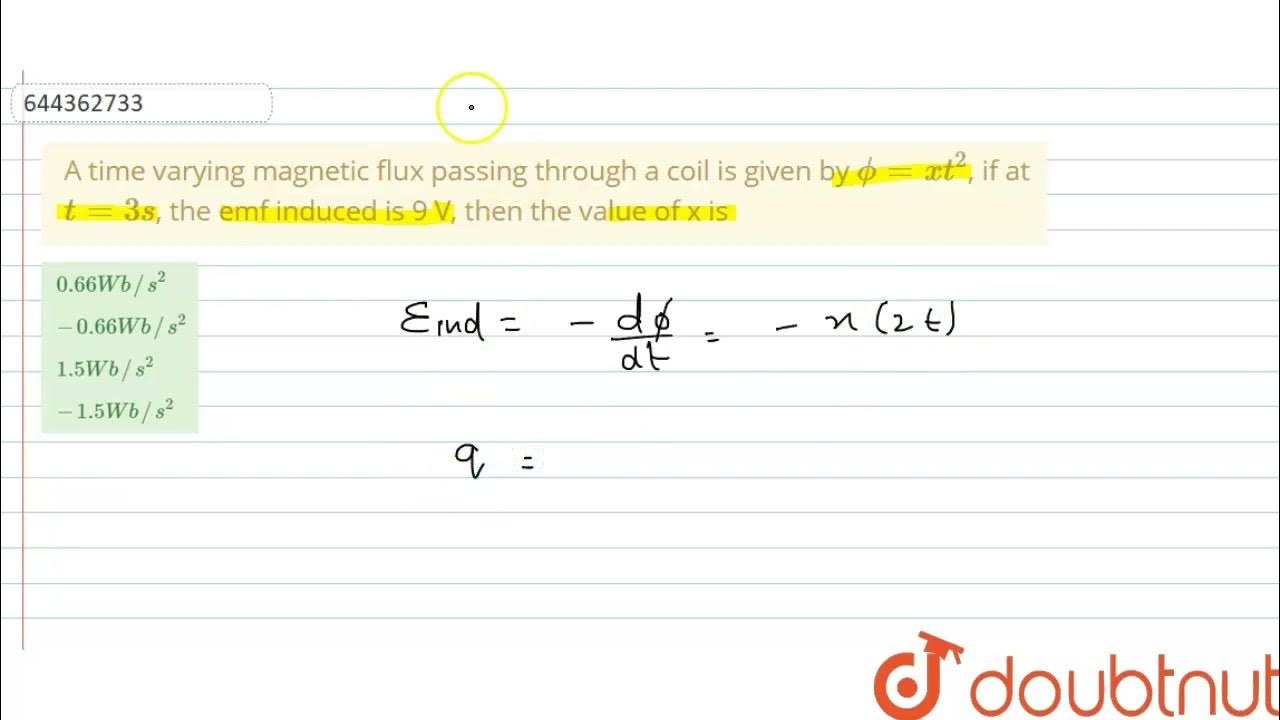 644362733
A time varying magnetic flux passing through a coil is given by ϕ = xt², if at
t = 3s, the emf induced is 9 V, then the value of x is
0.66Wb/s²
−0.66Wb/s²
1.5Wb/s²
−1.5Wb/s²
Ɛind = − dϕ/dt = − x(2t)
9 =
doubtnut